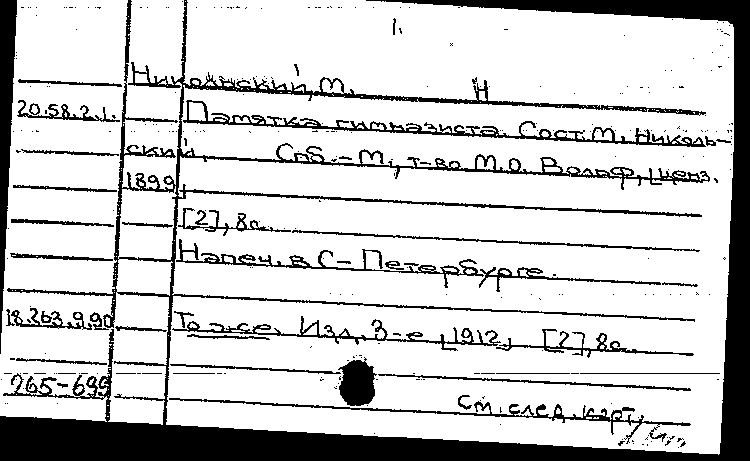 1.
Никольский, М. Н
20.58.2.1. Памятка гимназиста. Сост. М. Николь-
ский. Спб.-М., т-во М.О. Вольф, [ценз.
1899]
[2], 8с.
Напеч. в С-Петербурге.
18.263.9.90 То же. Изд. 3-е [1912] [2], 8с.
265-699
См. след. карт.